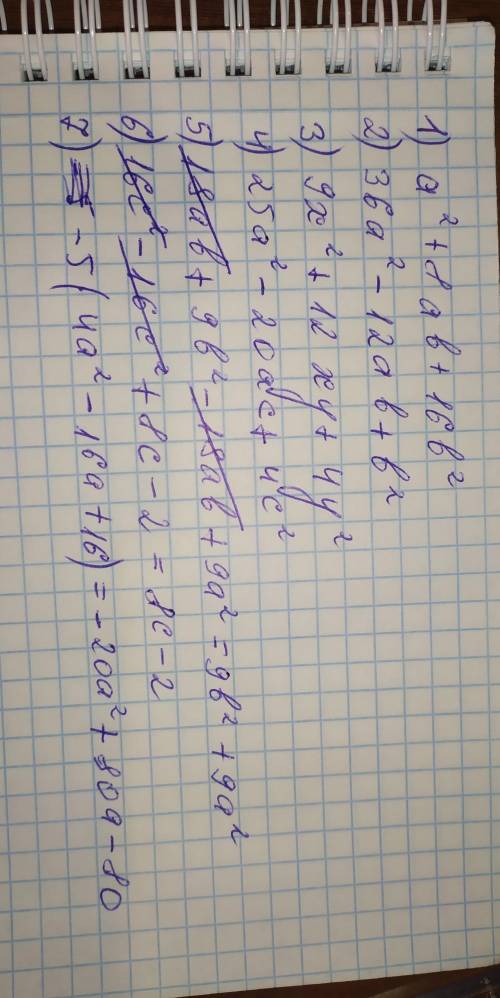 1) a² + 8ab + 16b²
2) 36a² - 12ab + b²
3) 9x² + 12xy + 4y²
4) 25a² - 20ac + 4c²
5) 18ab + 9b² - 18ab + 9a² = 9b² + 9a²
6) 16c² - 16c² + 8c - 2 = 8c - 2
7) -5(4a² - 16a + 16) = -20a² + 80a - 80